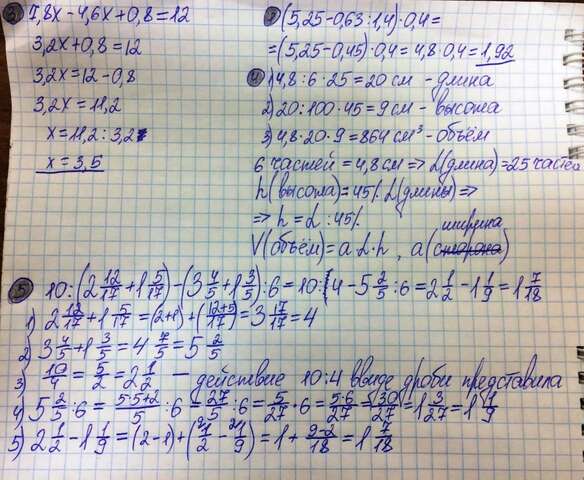 3) 7,8x-4,6x+0,8=12
3,2x+0,8=12
3,2x=12-0,8
3,2x=11,2
x=11,2:3,2
x=3,5
(5,25-0,63:1,4)·0,4=
=(5,25-0,45)·0,4=4,8·0,4=1,92
4) 1) 4,8:6·25=20 см - длина
2) 20:100·45=9 см - высота
3) 4,8·20·9=864 см³ - объём
6 частей = 4,8 см => L(длина)=25 частей
h(высота)=45% L(длины) =>
=> h = L:45%
ширина
V(объём)=a·L·h, a(сторона)
5) 10:(2 12/17+1 5/17)-(3 4/5+1 3/5):6=10:4-5 2/5:6=2 1/2-1 1/9=1 7/18
1) 2 12/17+1 5/17=(2+1)+(12+5/17)=3 17/17=4
2) 3 4/5+1 3/5=4 7/5=5 2/5
3) 10/4=5/2=2 1/2 — действие 10:4 ввиде дроби представила
4) 5 2/5:6=5·5+2/5:6=27/5:6=5/27·6=5·6/27=30/27=1 3/27=1 1/9
5) 2 1/2-1 1/9=(2-1)+(1/2-1/9)=1+9-2/18=1 7/18